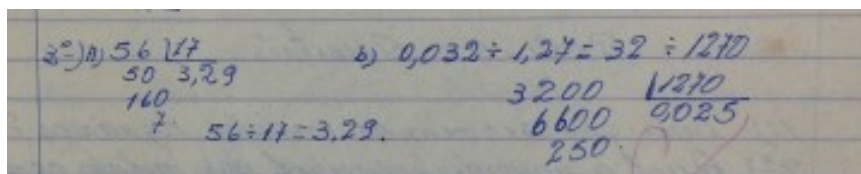 3º-) A) 56 |17
50 3,29
160
7.
56÷17=3,29.
b) 0,032÷1,27= 32 ÷1270
3200 |1270
6600 0,025
250.